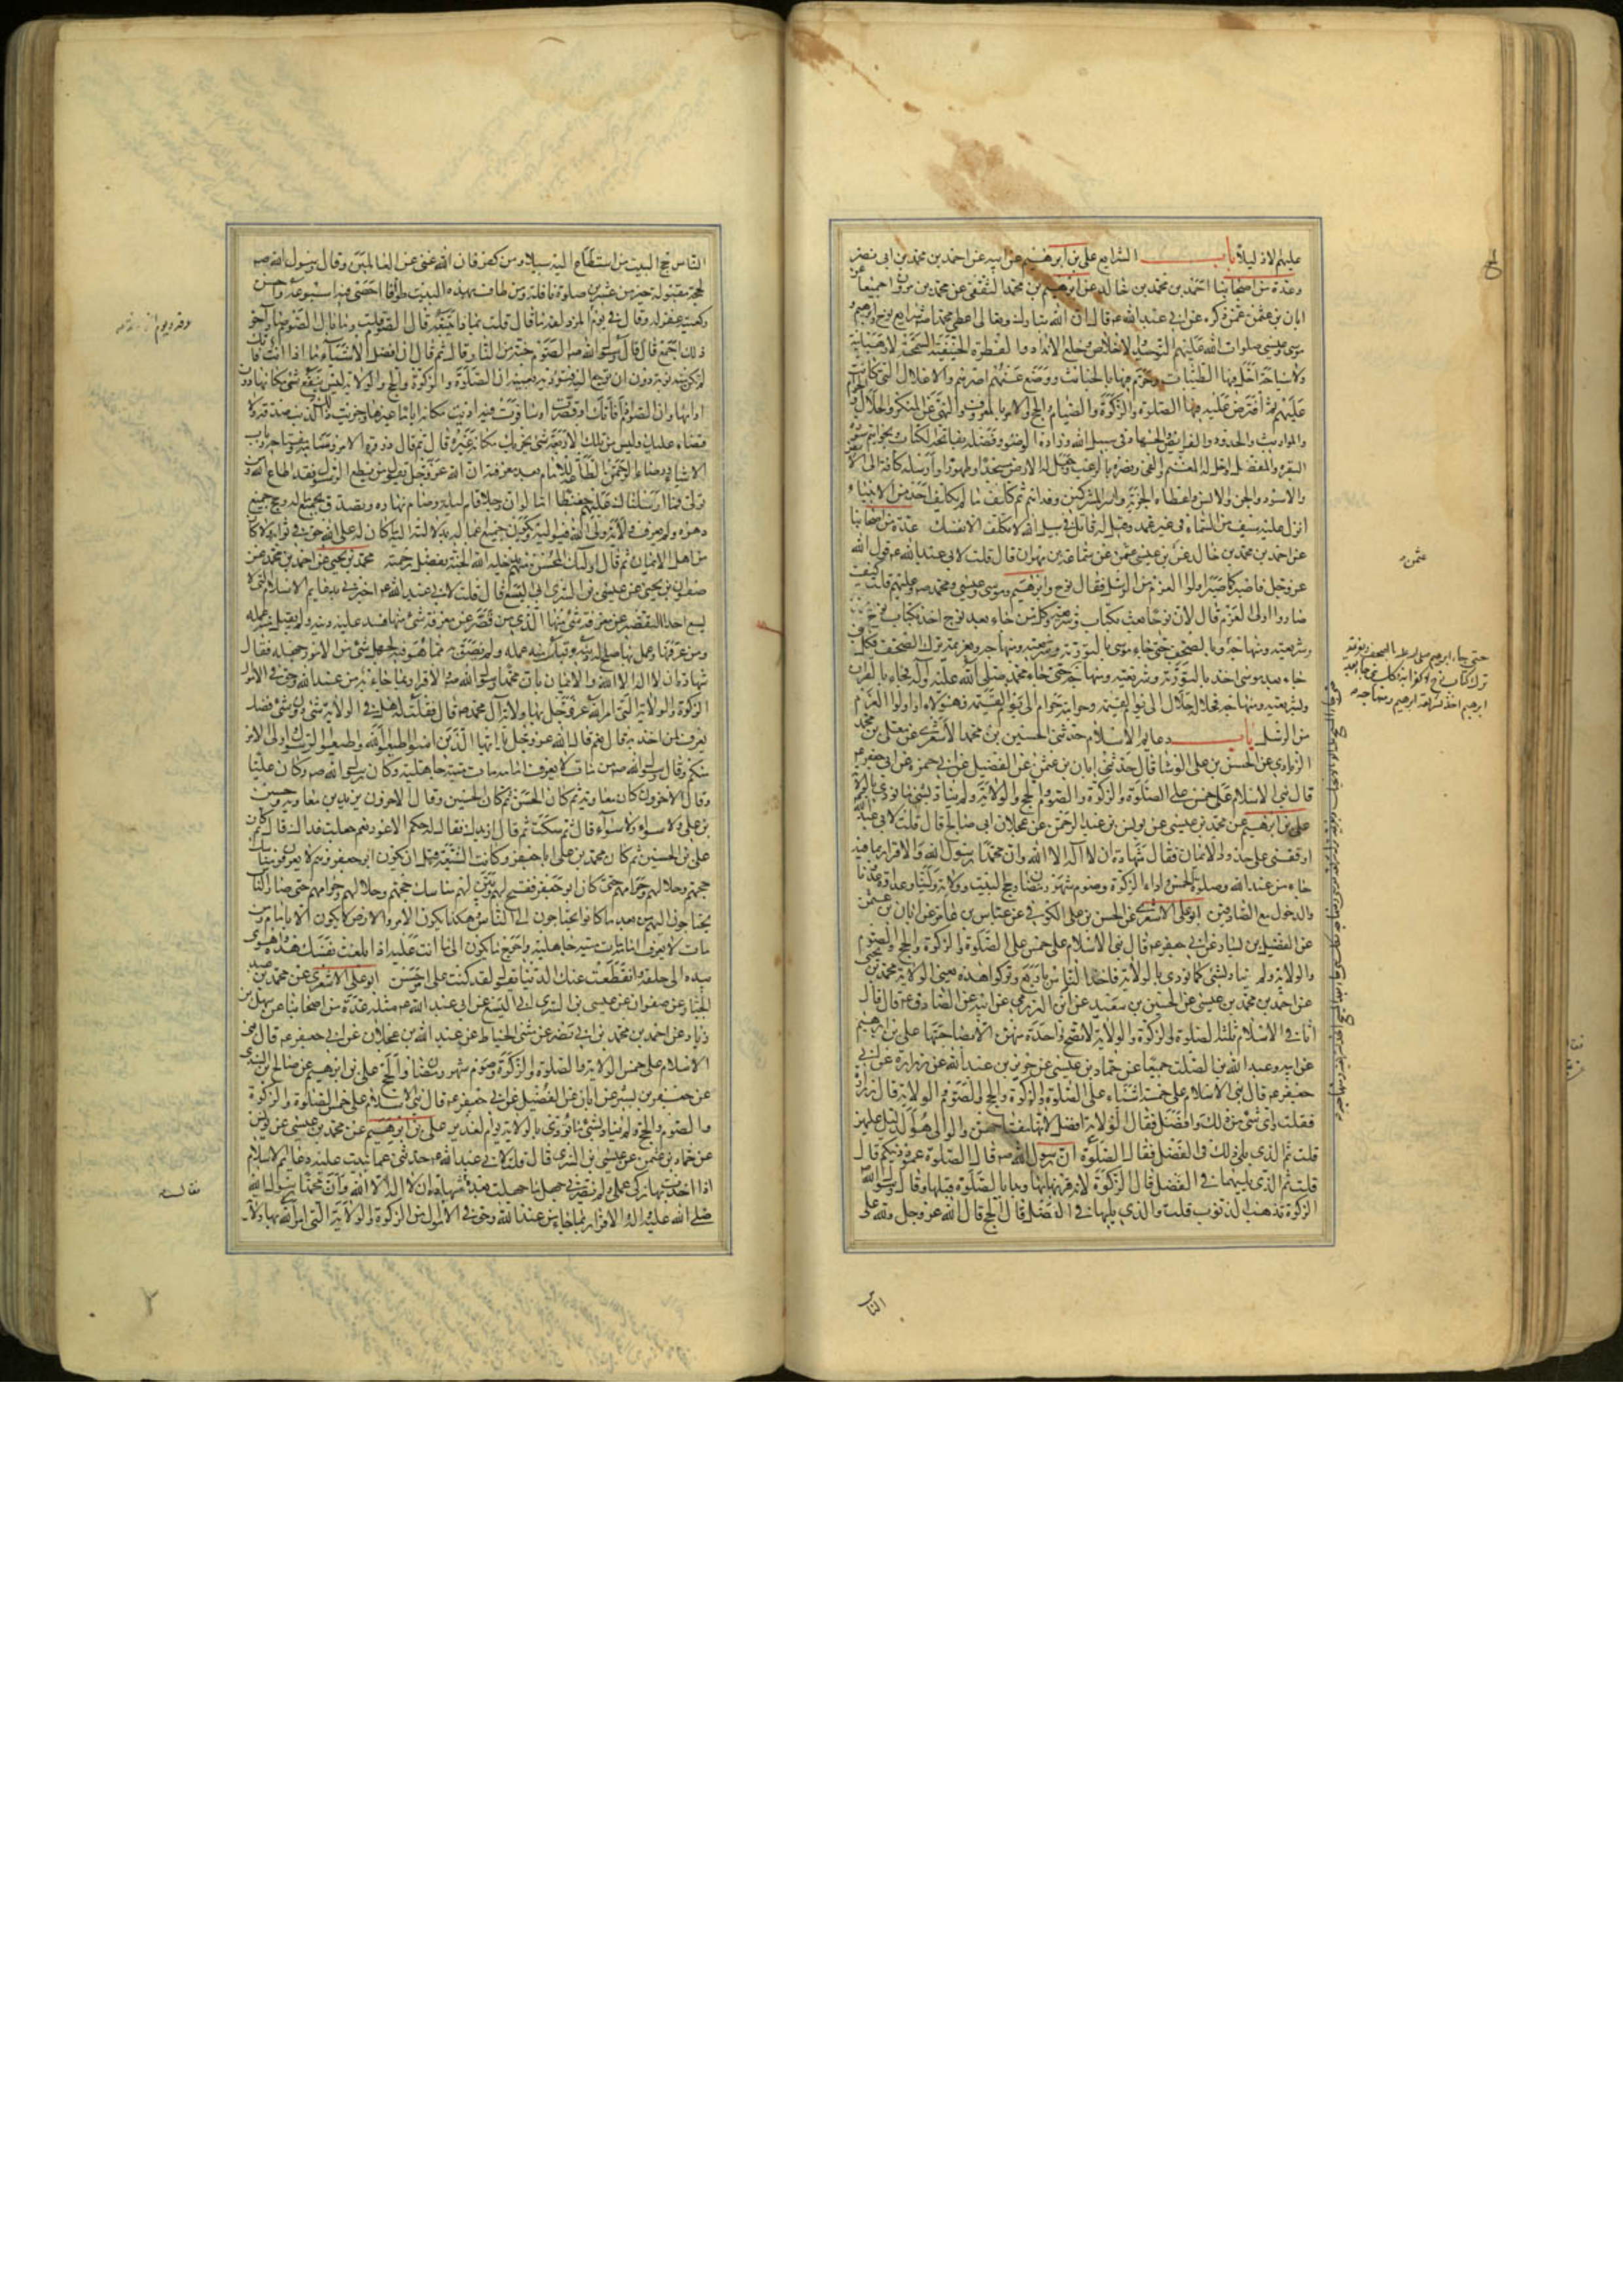 عليهم الا قليلا باب الشرايع علي بن ابرهيم عن ابيه عن احمد بن محمد بن ابي نصر
وعدة من اصحابنا احمد بن محمد بن خالد عن ابرهيم بن محمد الثقفي عن محمد بن مروان جميعا عن
ابان بن عثمن عمن ذكره عن ابي عبد الله ع قال ان الله تبارك وتعالى اعطى محمدا ص شرايع نوح وابرهيم و
موسى وعيسى صلوات الله عليهم التوحيد والاخلاص وخلع الانداد والفطرة الحنيفية السمحة لا رهبانية
ولا سياحة احل فيها الطيبات وحرم فيها الخبائث ووضع عنهم اصرهم والاغلال التي كانت
عليهم ثم افترض عليه فيها الصلوة والزكوة والصيام والحج والامر بالمعروف والنهي عن المنكر والحلال والحرام
والمواريث والحدود والفرايض والجهاد في سبيل الله وزاده الوضوء وفضله بفاتحة الكتاب وبخواتيم سورة
البقرة والمفصل واحل له المغنم والفيء ونصره بالرعب وجعل له الارض مسجدا وطهورا وارسله كافة الى الابيض
والاسود والجن والانس واعطاه الجزية واسر المشركين وفداهم ثم كلف ما لم يكلف احد من الانبياء
انزل عليه سيف من السماء في غير غمد وقيل له قاتل في سبيل الله لا تكلف الا نفسك عدة من اصحابنا
عن احمد بن محمد بن خالد عن بن عيسى عن سماعة بن مهران قال قلت لابي عبد الله ع قول الله
عز وجل فاصبر كما صبر اولوا العزم من الرسل فقال نوح وابرهيم وموسى وعيسى ومحمد ص وعليهم قلت كيف
صاروا اولى العزم قال لان نوحا بعث بكتاب وشريعة وكل من جاء بعد نوح اخذ بكتاب نوح
وشريعته ومنهاجه وبالصحف حتى جاء موسى بالتورية وشريعته ومنهاجه وبعزيمة ترك الصحف فكل
جاء بعد موسى اخذ بالتورية وشريعته ومنهاجه حتى جاء محمد صلى الله عليه وآله فجاء بالقران
وبشريعته ومنهاجه فحلاله حلال الى يوم القيمة وحرامه حرام الى يوم القيمة فهؤلاء اولوا العزم
من الرسل باب دعايم الاسلام حدثني الحسين بن محمد الاشعري عن معلى بن محمد
الزيادي عن الحسن بن علي الوشا قال حدثني ابان بن عثمن عن الفضيل عن ابي حمزة عن ابي جعفر ع
قال بني الاسلام على خمس على الصلوة والزكوة والصوم والحج والولاية ولم يناد بشيء ما نودي بالولاية
علي بن ابرهيم عن محمد بن عيسى عن يونس بن عبد الرحمن عن عجلان ابي صالح قال قلت لابي عبد الله
اوقفني على حدود الايمان فقال شهادة ان لا اله الا الله وان محمدا رسول الله والاقرار بما فيه
جاء من عند الله وصلوة الخمس واداء الزكوة وصوم شهر رمضان وحج البيت وولاية ولينا وعداوة عدونا
والدخول مع الصادقين ابو علي الاشعري عن الحسن بن علي الكوفي عن عباس بن عامر عن ابان بن عثمن
عن الفضيل بن يسار عن ابي جعفر ع قال بني الاسلام على خمس على الصلوة والزكوة والحج والصوم
والولاية ولم يناد بشيء كما نودي بالولاية فاخذ الناس باربع وتركوا هذه يعني الولاية محمد بن يحيى
عن احمد بن محمد بن عيسى عن الحسين بن سعيد عن ابن العرزمي عن ابيه عن الصادق ع قال قال
اثافي الاسلام ثلثة الصلوة والزكوة والولاية لا تصح واحدة منهن الا بصاحبتها علي بن ابرهيم
عن ابيه وعبد الله بن الصلت جميعا عن حماد بن عيسى عن حريز بن عبد الله عن زرارة عن ابي
جعفر ع قال بني الاسلام على خمسة اشياء على الصلوة والزكوة والحج والصوم والولاية قال زرارة
فقلت واي شيء من ذلك افضل فقال الولاية افضل لانها مفتاحهن والوالي هو الدليل عليهن
قلت ثم الذي يلي ذلك في الفضل فقال الصلوة ان رسول الله ص قال الصلوة عمود دينكم قال
قلت ثم الذي يليها في الفضل قال الزكوة لانه قرنها بها وبدا بالصلوة قبلها وقال رسول الله
الزكوة تذهب الذنوب قلت والذي يليها في الفضل قال الحج قال الله عز وجل ولله على
الناس
عثمن
حتى جاء ابرهيم صلى الله عليه الصحف وبعزيمة
ترك كتاب نوح لا كفرا به فكل نبي جاء بعد
ابرهيم اخذ بشريعة ابرهيم ومنهاجه
الناس حج البيت من استطاع اليه سبيلا ومن كفر فان الله غني عن العالمين وقال رسول الله ص
لحجة مقبولة خير من عشرين صلوة نافلة ومن طاف بهذا البيت طوافا احصى فيه اسبوعه واحسن
ركعتيه غفر له وقال في يوم المزدلفة ما قال قلت بماذا يتبعه قال الصوم قلت وما بال الصوم صار آخر
ذلك اجمع قال قال رسول الله ص الصوم جنة من النار قال ثم قال ان افضل الاشياء ما اذا انت فاتك
لم تكن منه توبة دون ان ترجع اليه فتؤديه بعينه ان الصلوة والزكوة والحج والولاية ليس ينفع شيء مكانها دون
ادائها وان الصوم اذا فاتك او قصرت او سافرت فيه اديت مكانه اياما غيرها وجزيت ذلك الذنب بصدقة ولا
قضاء عليك وليس من تلك الاربعة شيء يجزيك مكانه غيره قال ثم قال ذروة الامر وسنامه ومفتاحه وباب
الاشياء ورضاء الرحمن الطاعة للامام بعد معرفته ان الله عز وجل يقول من يطع الرسول فقد اطاع الله ومن
تولى فما ارسلناك عليهم حفيظا اما لو ان رجلا قام ليله وصام نهاره وتصدق بجميع ماله وحج جميع
دهره ولم يعرف ولاية ولي الله فيواليه ويكون جميع اعماله بدلالته اليه ما كان له على الله حق في ثوابه ولا كان
من اهل الايمان ثم قال اولئك المحسن منهم يدخله الله الجنة بفضل رحمته محمد بن يحيى عن احمد بن محمد عن
صفوان بن يحيى عن عيسى بن السري ابي اليسع قال قلت لابي عبد الله ع اخبرني بدعايم الاسلام التي لا
يسع احدا التقصير عن معرفة شيء منها الذي من قصر عن معرفة شيء منها فسد عليه دينه ولم يقبل منه عمله
ومن عرفها وعمل بها صلح له دينه وقبل منه عمله ولم يضق به مما هو فيه لجهل شيء من الامور جهله فقال
شهادة ان لا اله الا الله والايمان بان محمدا رسول الله ص والاقرار بما جاء به من عند الله وحق في الاموال
الزكوة والولاية التي امر الله عز وجل بها ولاية آل محمد ص قال فقلت له هل في الولاية شيء دون شيء فضل
يعرف لمن اخذ به قال نعم قال الله عز وجل يا ايها الذين امنوا اطيعوا الله واطيعوا الرسول واولي الامر
منكم وقال رسول الله ص من مات لا يعرف امامه مات ميتة جاهلية وكان رسول الله ص وكان عليا
وقال الاخرون كان معاوية ثم كان الحسن ثم كان الحسين وقال الاخرون يزيد بن معاوية وحسين
بن علي ولا سواء ولا سواء قال ثم سكت ثم قال ازيدك فقال له حكم الاعور نعم جعلت فداك قال ثم كان
علي بن الحسين ثم كان محمد بن علي ابا جعفر وكانت الشيعة قبل ان يكون ابو جعفر وهم لا يعرفون مناسك
حجهم وحلالهم وحرامهم حتى كان ابو جعفر ففتح لهم وبين لهم مناسك حجهم وحلالهم وحرامهم حتى صار الناس
يحتاجون اليهم من بعد ما كانوا يحتاجون الى الناس وهكذا يكون الامر والارض لا يكون الا بامام ومن
مات لا يعرف امامه مات ميتة جاهلية واحوج ما يكون الى ما انت عليه اذا بلغت نفسك هذه واهوى
بيده الى حلقه وانقطعت عنك الدنيا تقول لقد كنت على امر حسن ابو علي الاشعري عن محمد بن عبد
الجبار عن صفوان عن عيسى بن السري ابي اليسع عن ابي عبد الله ع مثله عدة من اصحابنا عن سهل بن
زياد عن احمد بن محمد بن ابي نصر عن مثنى الحناط عن عبد الله بن عجلان عن ابي جعفر ع قال بني
الاسلام على خمس الولاية والصلوة والزكوة وصوم شهر رمضان والحج علي بن ابرهيم عن صالح بن السندي
عن جعفر بن بشير عن ابان عن الفضيل عن ابي جعفر ع قال بني الاسلام على خمس الصلوة والزكوة
والصوم والحج والولاية ولم يناد بشيء ما نودي بالولاية يوم الغدير علي بن ابرهيم عن محمد بن عيسى عن يونس
عن حماد بن عثمن عن عيسى بن السري قال قلت لابي عبد الله ع حدثني عما بنيت عليه دعايم الاسلام
اذا اخذت بها زكى عملي ولم يضرني جهل ما جهلت بعده شهادة ان لا اله الا الله وان محمدا رسول الله
صلى الله عليه واله والاقرار بما جاء من عند الله وحق في الاموال من الزكوة والولاية التي امر الله بها ولاية
فقال